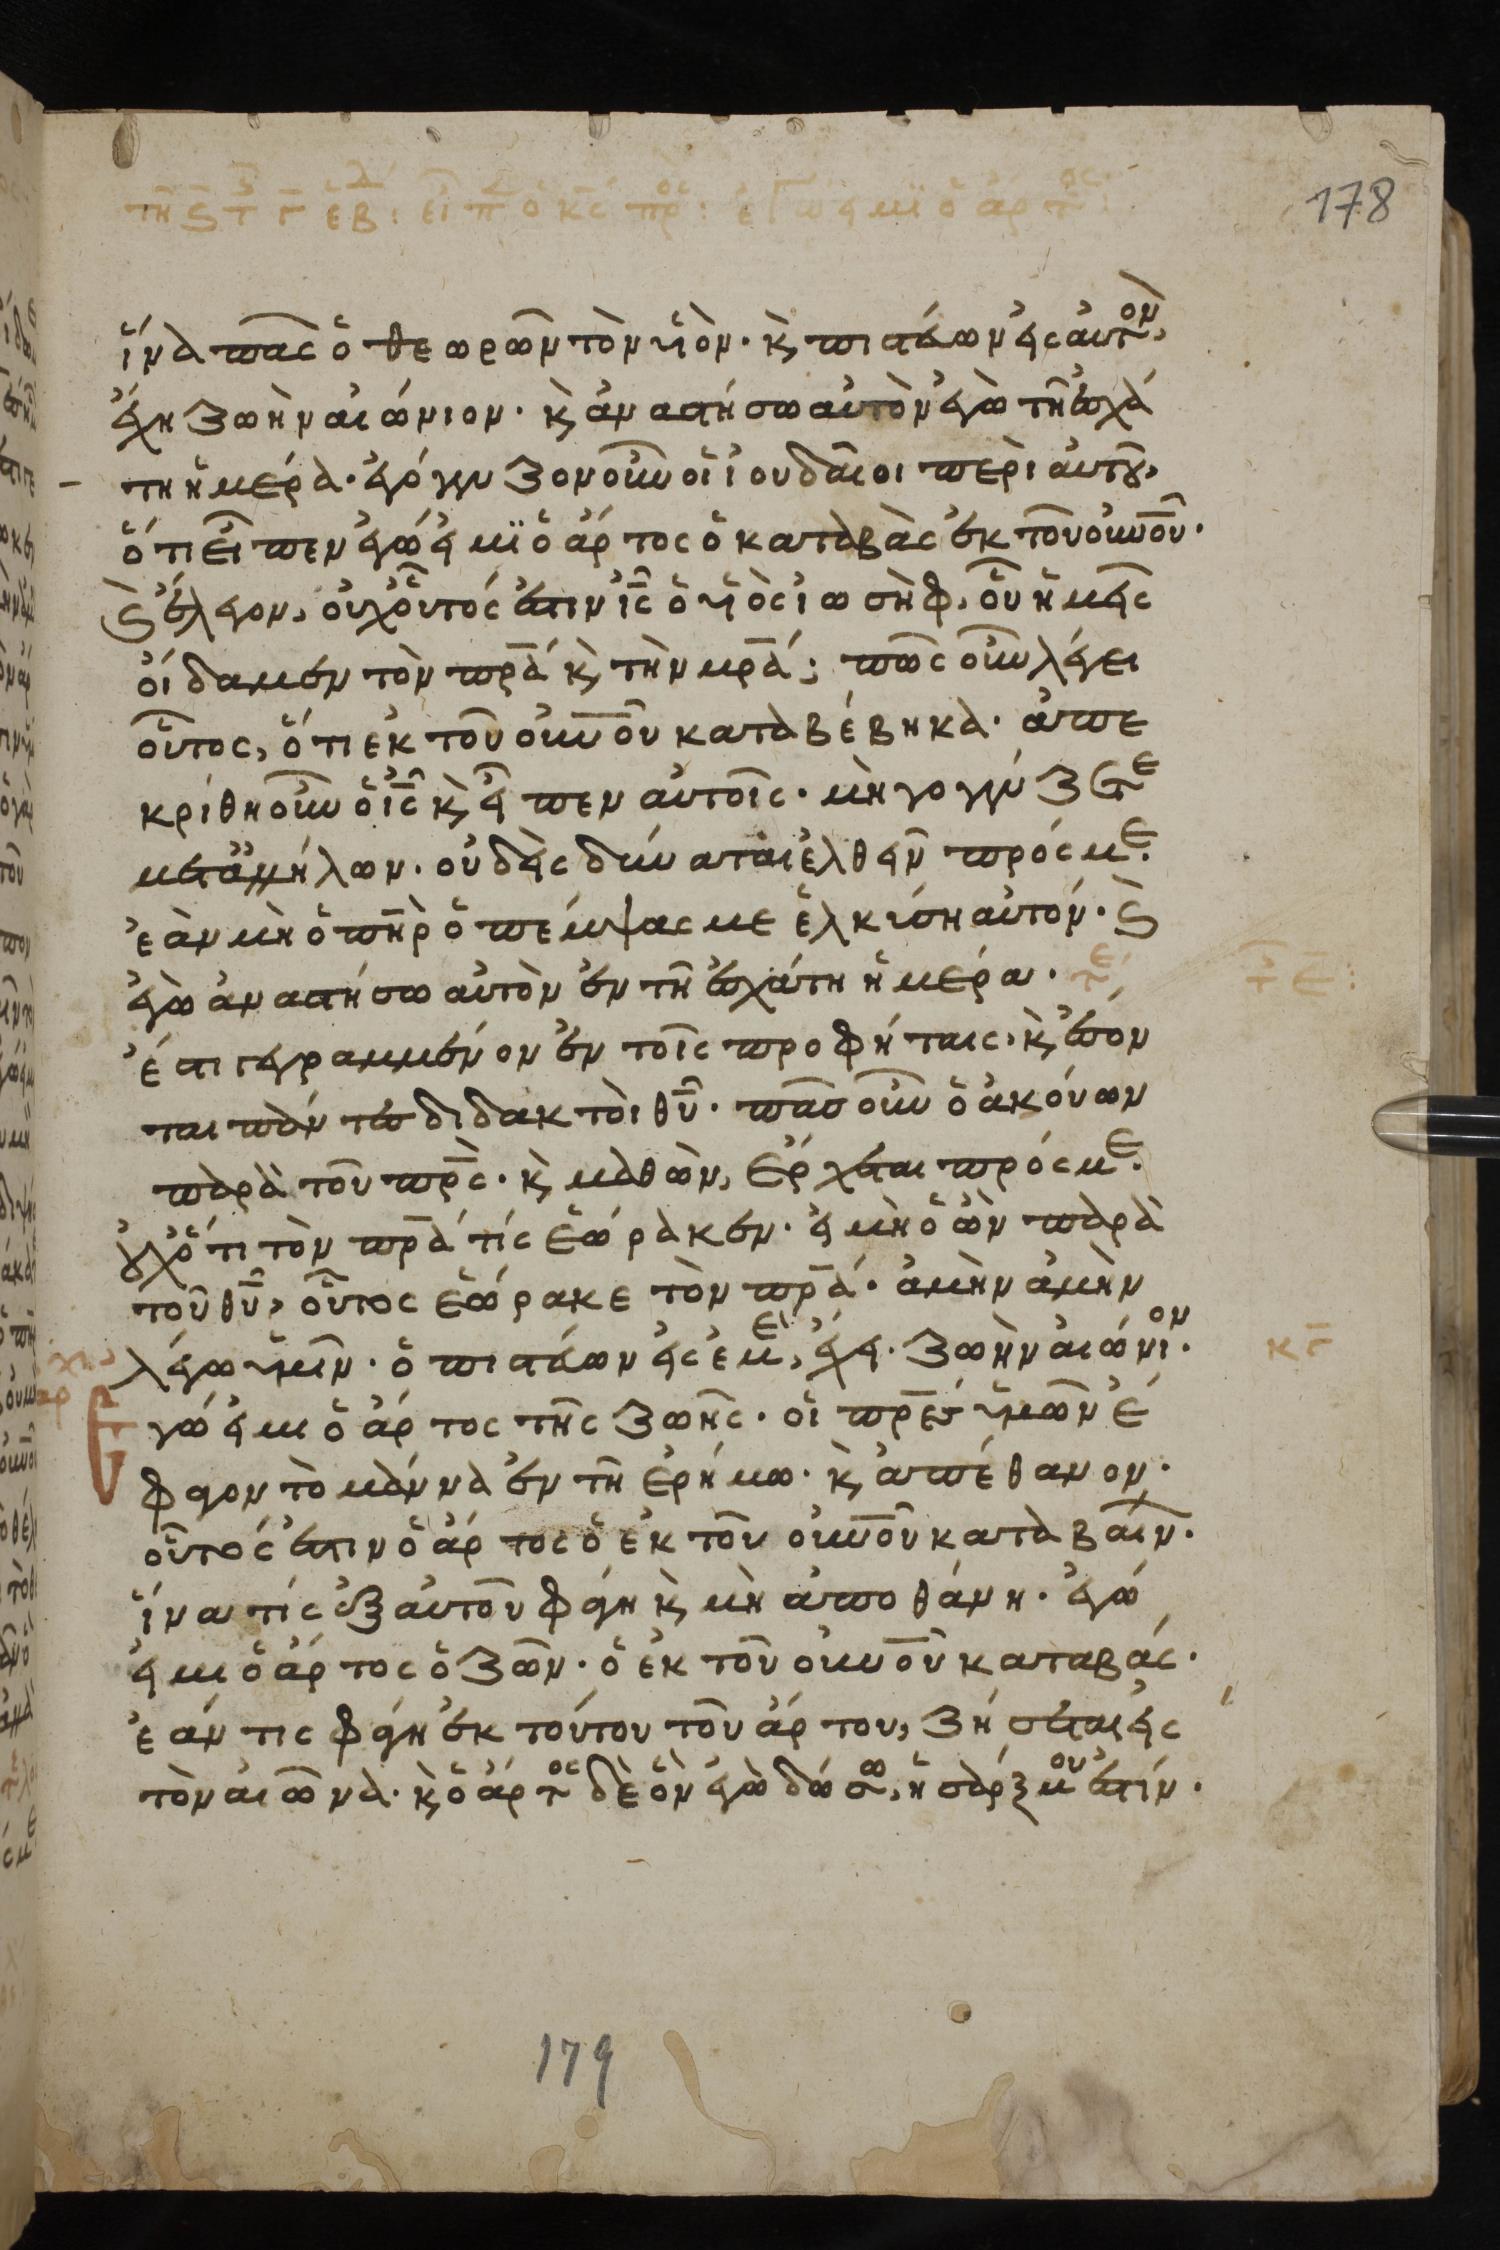 178
ἵνα πᾶς ὁ θεωρῶν τὸν υἱὸν· κ̀ πιστεύων εἰς αὐτὸν,
ἔχη ζωὴν αἰώνιον· κ̀ ἀναστήσω αὐτὸν ἐγὼ τῆ ἐσχά
τη ἡμέρα· ἐγόγγυζον οὖν οἱ ἰουδαῖοι περὶ αὐτοῦ,
ὅτι εἶπεν ἐγώ εἰμϊ ὁ ἄρτος ὁ καταβὰς ἐκ τοῦ οὐν̅οῦ·
κ̀ ἔλεγον, οὐχ οὗτός ἐστιν ἰς̅ ὁ υἱὸς ἰωσὴφ, οὗ ἡμεῖς
οἴδαμεν τὸν πρ̅α κ̀ τὴν μρ̅α; πῶς οὖν λέγει
οὗτος, ὅτι ἐκ τοῦ οὐν̅οῦ καταβέβηκα· ἀπε
κρίθη οὖν ὁ ἰς̅ κ̀ εἶπεν αὐτοῖς· μὴ γογγύζετε
μετ' ἀλλήλων· οὐδεὶς δύναται ἐλθεῖν πρός με·
ἐὰν μὴ ὁ πη̅ρ ὁ πέμψας με ἑλκύση αὐτόν· κ̀
ἐγὼ ἀναστήσω αὐτὸν ἐν τῆ ἐσχάτη ἡμέρα· τε
τ̅ε̅:
ἔστι γεγραμμένον ἐν τοῖς προφήταις· κ̀ ἔσον
ται πάντες διδακτοὶ θυ̅· πᾶσ οὖν ὁ ἀκούων
παρὰ τοῦ πρ̅ς· κ̀ μαθὼν, ἔρχεται πρός με·
οὐχ ὅτι τὸν πρ̅α τίς ἑώρακεν· εἰ μὴ ὁ ὢν παρὰ
τοῦ θυ̅, οὗτος ἑώρακε τὸν πρ̅α· ἀμὴν ἀμὴν
λέγω ὑμῖν· ὁ πιστεύων εἰς ἐμὲ, ἔχει· ζωὴν αἰώνιον·
Ἐγώ εἰμι ὁ ἄρτος τῆς ζωῆς· οἱ πρ̅ες ὑμῶν ἔ
φαγον τὸ μάννα ἐν τῆ ἐρήμω· κ̀ ἀπέθανον·
οὗτός ἐστιν ὁ ἄρτος ὁ ἐκ τοῦ οὐν̅οῦ καταβαίν·
ἵνα τίς ἐξ αὐτοῦ φάγη κ̀ μὴ ἀποθάνη· ἐγώ
εἰμι ὁ ἄρτος ὁ ζῶν· ὁ ἐκ τοῦ οὐν̅οῦ καταβάς·
ἐάν τις φάγη ἐκ τούτου τοῦ ἄρτου, ζήσεται εἰς
τὸν αἰῶνα· κ̀ ὁ ἄρτος δὲ ὃν ἐγὼ δώσω, ἡ σάρξ μου ἐστίν·
179